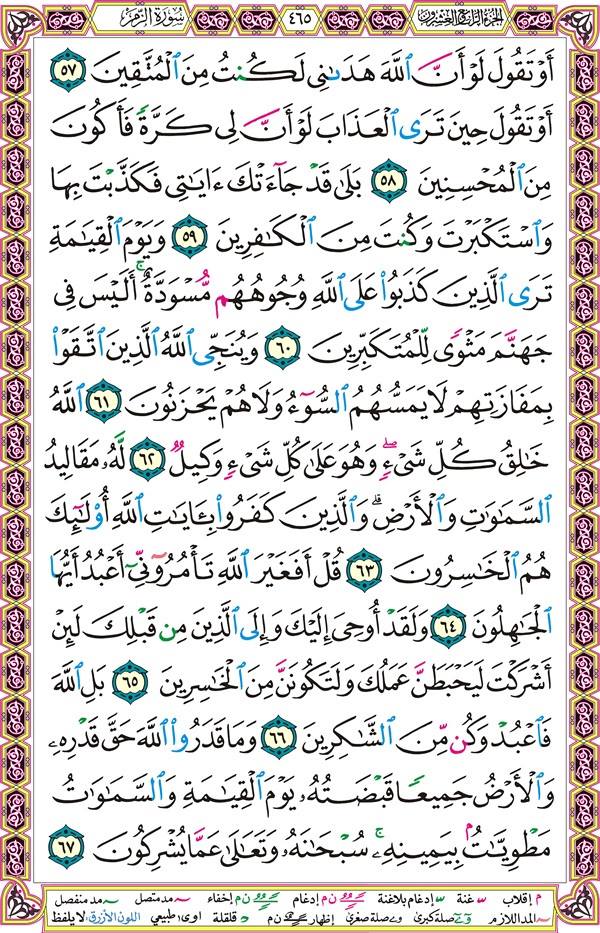 سورة الزمر
٤٦٥
الجزء الرابع والعشرون
أَوْ تَقُولَ لَوْ أَنَّ ٱللَّهَ هَدَىٰنِى لَكُنتُ مِنَ ٱلْمُتَّقِينَ ٥٧
أَوْ تَقُولَ حِينَ تَرَى ٱلْعَذَابَ لَوْ أَنَّ لِى كَرَّةً فَأَكُونَ
مِنَ ٱلْمُحْسِنِينَ ٥٨ بَلَىٰ قَدْ جَآءَتْكَ ءَايَٰتِى فَكَذَّبْتَ بِهَا
وَٱسْتَكْبَرْتَ وَكُنتَ مِنَ ٱلْكَٰفِرِينَ ٥٩ وَيَوْمَ ٱلْقِيَٰمَةِ
تَرَى ٱلَّذِينَ كَذَبُوا۟ عَلَى ٱللَّهِ وُجُوهُهُم مُّسْوَدَّةٌ ۚ أَلَيْسَ فِى
جَهَنَّمَ مَثْوًى لِّلْمُتَكَبِّرِينَ ٦٠ وَيُنَجِّى ٱللَّهُ ٱلَّذِينَ ٱتَّقَوْا۟
بِمَفَازَتِهِمْ لَا يَمَسُّهُمُ ٱلسُّوٓءُ وَلَا هُمْ يَحْزَنُونَ ٦١ ٱللَّهُ
خَٰلِقُ كُلِّ شَىْءٍ ۖ وَهُوَ عَلَىٰ كُلِّ شَىْءٍ وَكِيلٌ ٦٢ لَّهُۥ مَقَالِيدُ
ٱلسَّمَٰوَٰتِ وَٱلْأَرْضِ ۗ وَٱلَّذِينَ كَفَرُوا۟ بِـَٔايَٰتِ ٱللَّهِ أُو۟لَٰٓئِكَ
هُمُ ٱلْخَٰسِرُونَ ٦٣ قُلْ أَفَغَيْرَ ٱللَّهِ تَأْمُرُوٓنِّىٓ أَعْبُدُ أَيُّهَا
ٱلْجَٰهِلُونَ ٦٤ وَلَقَدْ أُوحِىَ إِلَيْكَ وَإِلَى ٱلَّذِينَ مِن قَبْلِكَ لَئِنْ
أَشْرَكْتَ لَيَحْبَطَنَّ عَمَلُكَ وَلَتَكُونَنَّ مِنَ ٱلْخَٰسِرِينَ ٦٥ بَلِ ٱللَّهَ
فَٱعْبُدْ وَكُن مِّنَ ٱلشَّٰكِرِينَ ٦٦ وَمَا قَدَرُوا۟ ٱللَّهَ حَقَّ قَدْرِهِۦ
وَٱلْأَرْضُ جَمِيعًا قَبْضَتُهُۥ يَوْمَ ٱلْقِيَٰمَةِ وَٱلسَّمَٰوَٰتُ
مَطْوِيَّٰتٌۢ بِيَمِينِهِۦ ۚ سُبْحَٰنَهُۥ وَتَعَٰلَىٰ عَمَّا يُشْرِكُونَ ٦٧
م إقلاب غنة إدغام بلاغنة ن م إدغام ن م إخفاء مد متصل مد منفصل
المد اللازم صلة كبرى صلة صغرى إظهار ن م قلقلة اوى طبيعي اللون الأزرق لا يلفظ